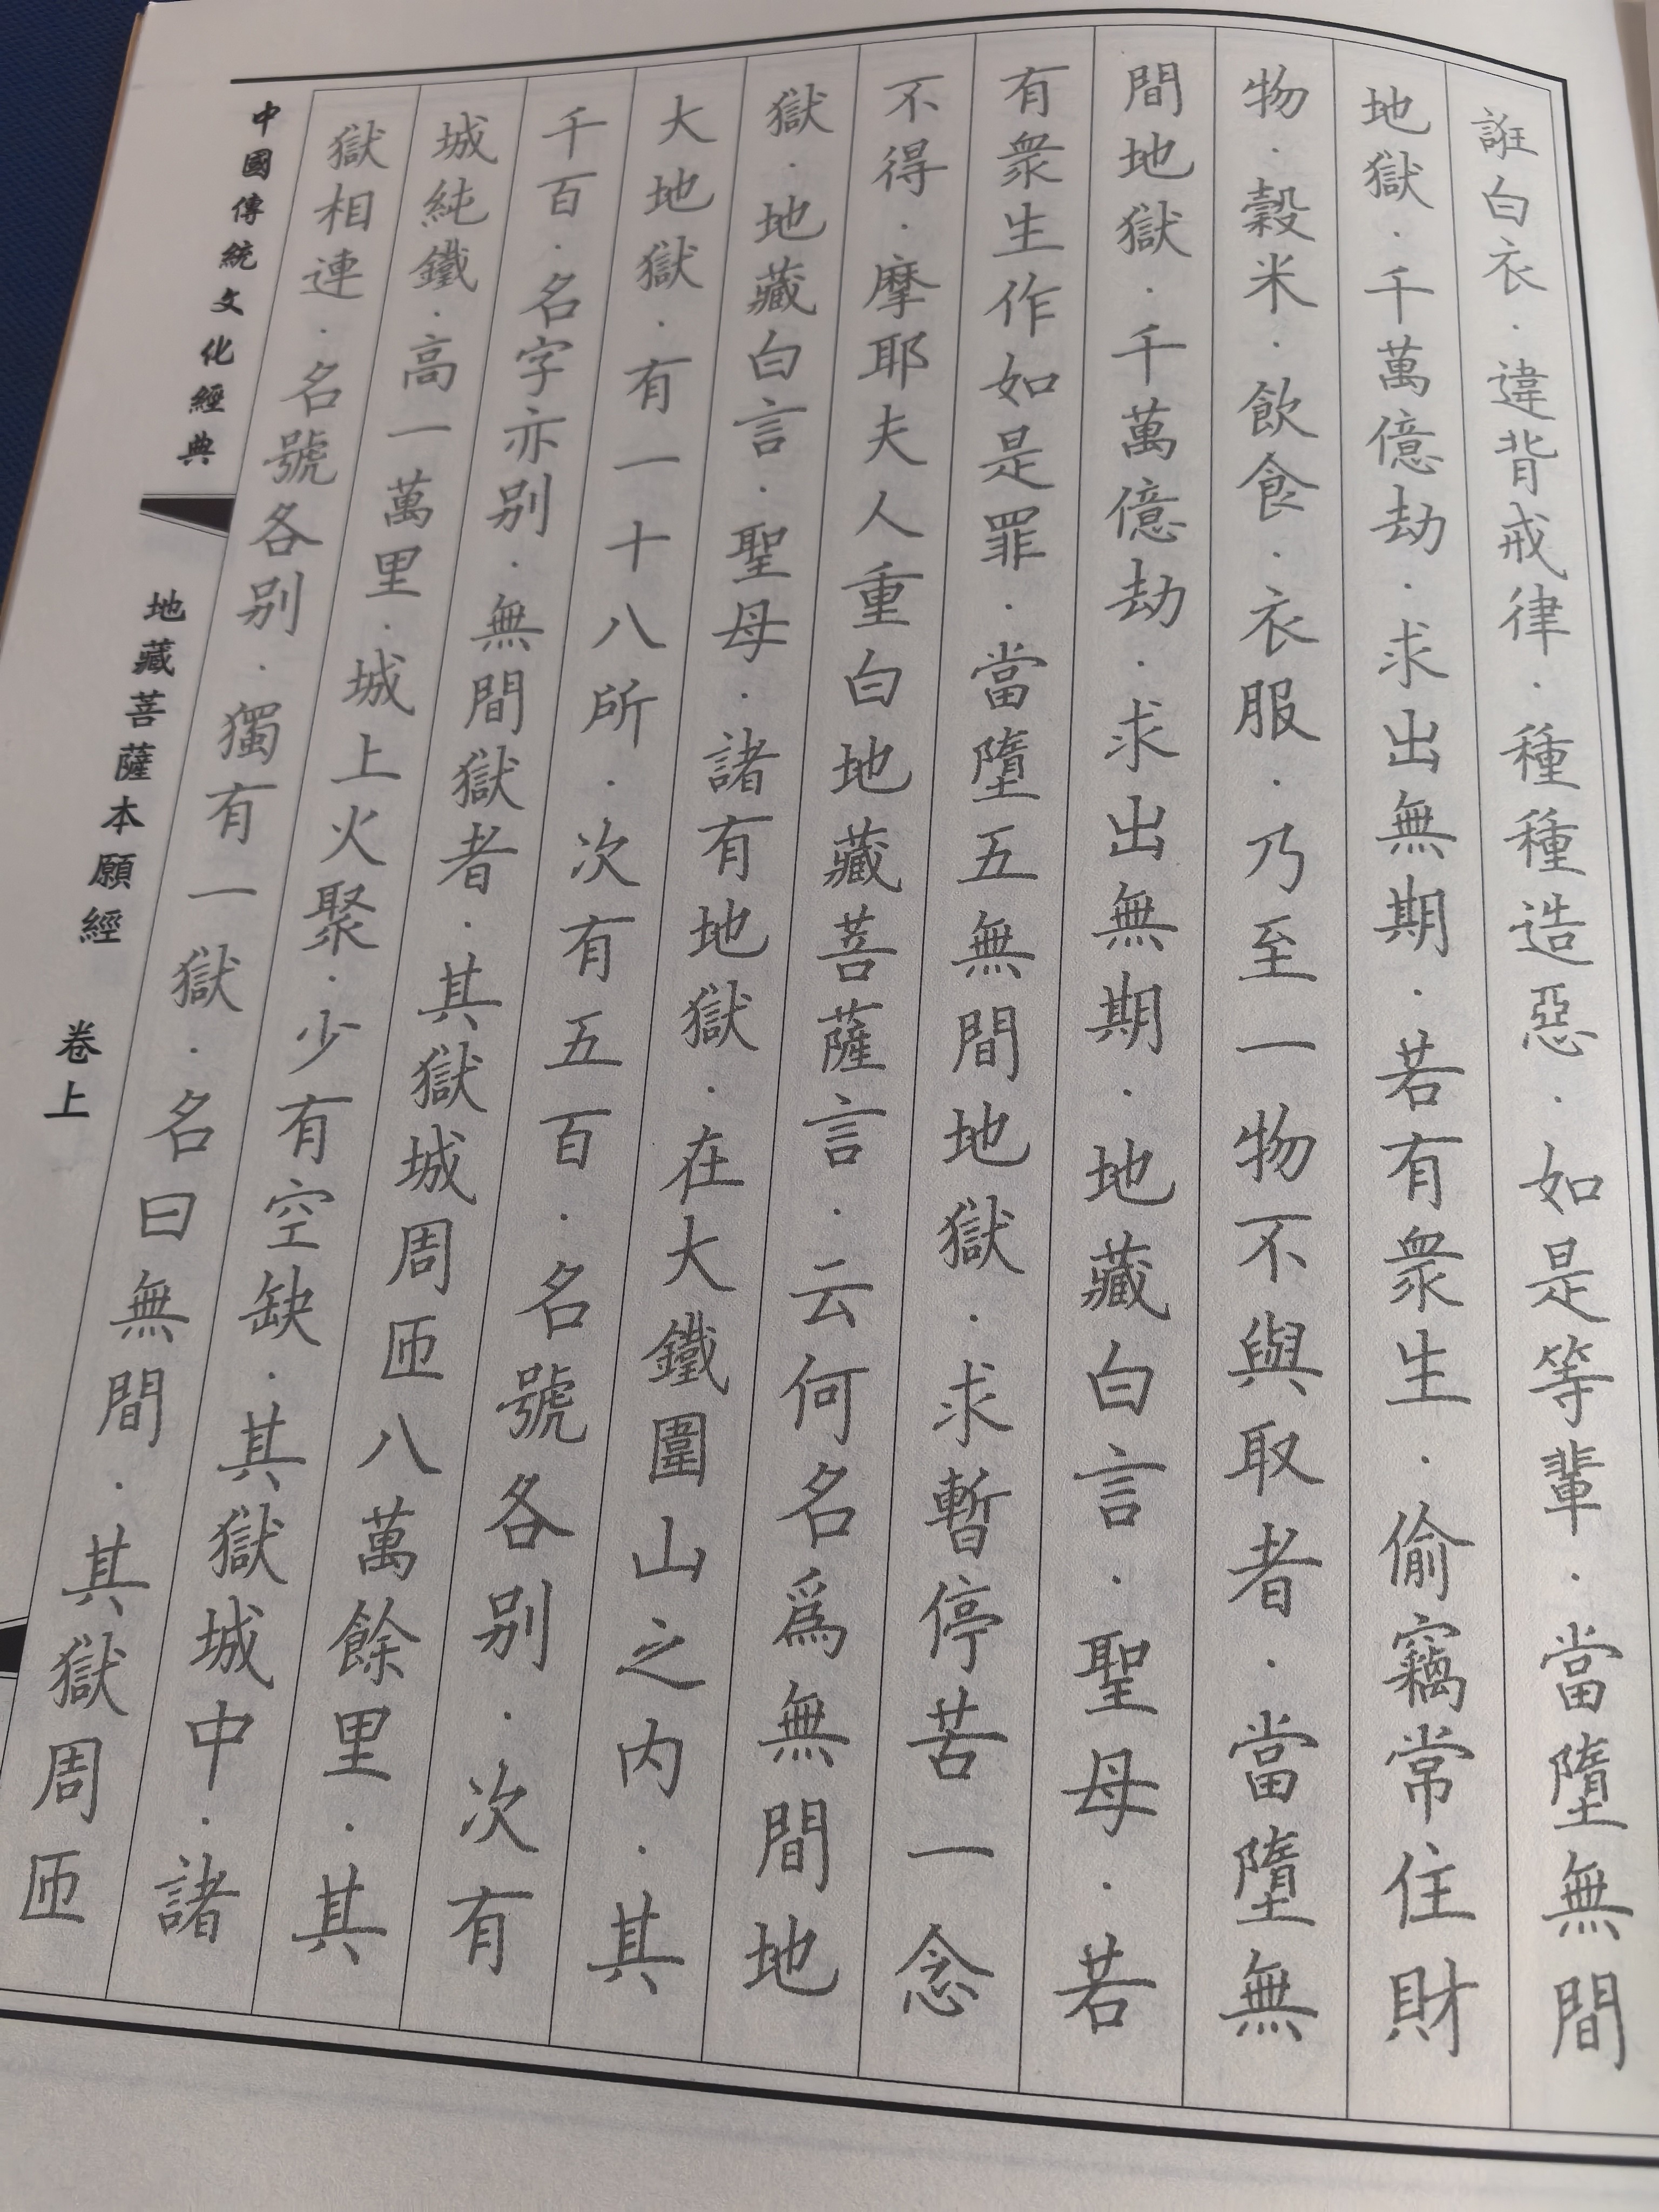 誑白衣．違背戒律．種種造惡．如是等輩．當墮無間
地獄．千萬億劫．求出無期．若有衆生．偷竊常住財
物．穀米．飲食．衣服．乃至一物不與取者．當墮無
間地獄．千萬億劫．求出無期．地藏白言．聖母．若
有衆生作如是罪．當墮五無間地獄．求暫停苦一念
不得．摩耶夫人重白地藏菩薩言．云何名爲無間地
獄．地藏白言．聖母．諸有地獄．在大鐵圍山之内．其
大地獄．有一十八所．次有五百．名號各别．次有
千百．名字亦别．無間獄者．其獄城周匝八萬餘里．其
城純鐵．高一萬里．城上火聚．少有空缺．其獄城中．諸
獄相連．名號各别．獨有一獄．名曰無間．其獄周匝
中國傳統文化經典
地藏菩薩本願經 卷上